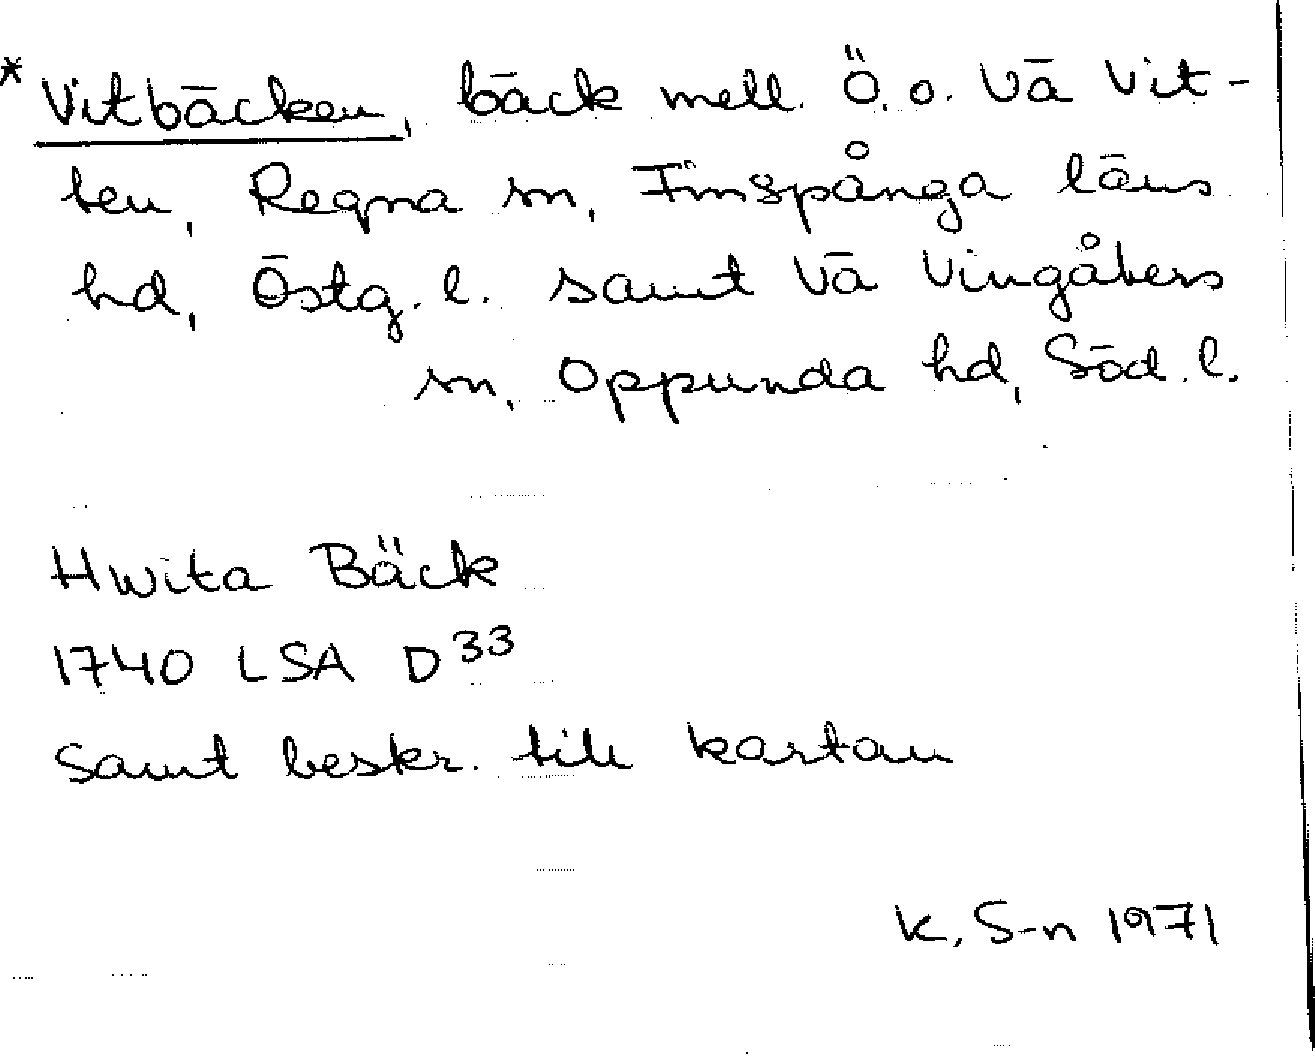 * Vitbäcken, bäck mell. Ö. o. Vä Vit-
ten, Regna sn, Finspånga läns
hd, Östg. l. samt Vä Vingåkers
sn, Oppunda hd, Söd. l.
Hwita Bäck
1740 LSA D 33
Samt beskr. till kartan
K. S-n 1971